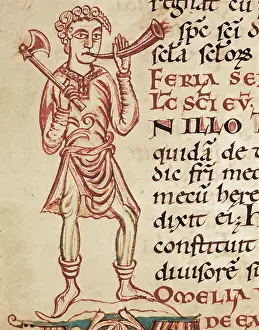 regnat cu
spc sci d
scla sclor
FERIA SE
LC SCI EV
N ILLO
quida de t
dic fri mec
mecu here
dixit ei H
constituit
divisore s
OMELIA
DE EA